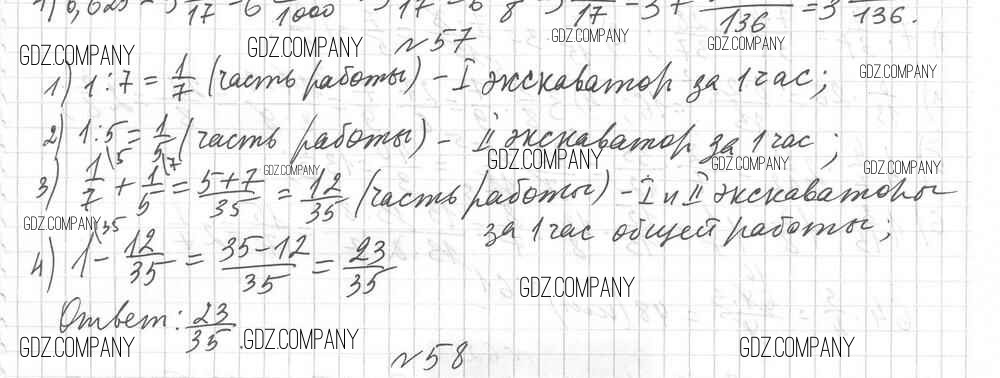 1) 0,625
17 6 1000 17 6 8 17 136 = 3 136.
GDZ.COMPANY GDZ.COMPANY №57 GDZ.COMPANY GDZ.COMPANY
1) 1:7 = 1/7 (часть работы) – I экскаватор за 1 час; GDZ.COMPANY
2) 1:5 = 1/5 (часть работы) – II экскаватор за 1 час;
GDZ.COMPANY GDZ.COMPANY GDZ.COMPANY GDZ.COMPANY
3) 1\5/7 + 1\7/5 = 5+7/35 = 12/35 (часть работы) – I и II экскаваторы
GDZ.COMPANY за 1 час общей работы;
4) 1\35 – 12/35 = 35–12/35 = 23/35
GDZ.COMPANY
Ответ: 23/35.
GDZ.COMPANY GDZ.COMPANY №58 GDZ.COMPANY